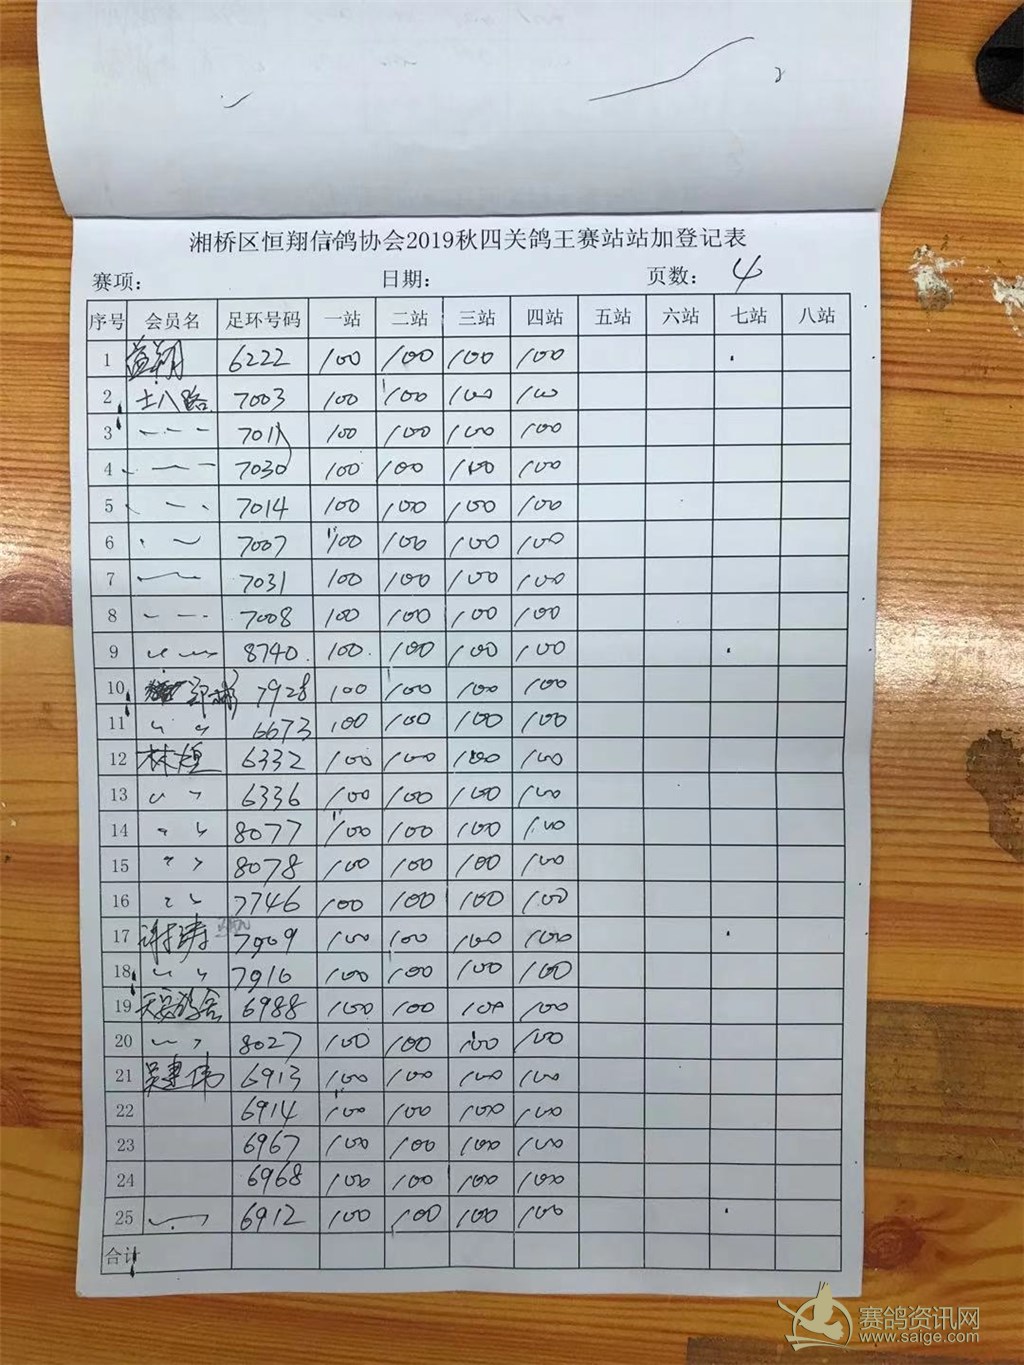 湘桥区恒翔信鸽协会2019秋四关鸽王赛站站加登记表
赛项: 日期: 页数: 4
序号 会员名 足环号码 一站 二站 三站 四站 五站 六站 七站 八站
1 益翔 6222 100 100 100 100
2 士八路 7003 100 100 100 100
3 7011 100 100 100 100
4 7030 100 100 100 100
5 7014 100 100 100 100
6 7007 100 100 100 100
7 7031 100 100 100 100
8 7008 100 100 100 100
9 8740 100 100 100 100
10 郑彬 7928 100 100 100 100
11 〃 〃 6673 100 100 100 100
12 林煌 6332 100 100 100 100
13 〃 〃 6336 100 100 100 100
14 〃 〃 8077 100 100 100 100
15 〃 〃 8078 100 100 100 100
16 〃 〃 7746 100 100 100 100
17 谢涛 7909 100 100 100 100
18 〃 〃 7910 100 100 100 100
19 天安鸽舍 6988 100 100 100 100
20 〃 〃 8027 100 100 100 100
21 吴建伟 6913 100 100 100 100
22 6914 100 100 100 100
23 6967 100 100 100 100
24 6968 100 100 100 100
25 6912 100 100 100 100
合计
赛鸽资讯网
www.saige.com